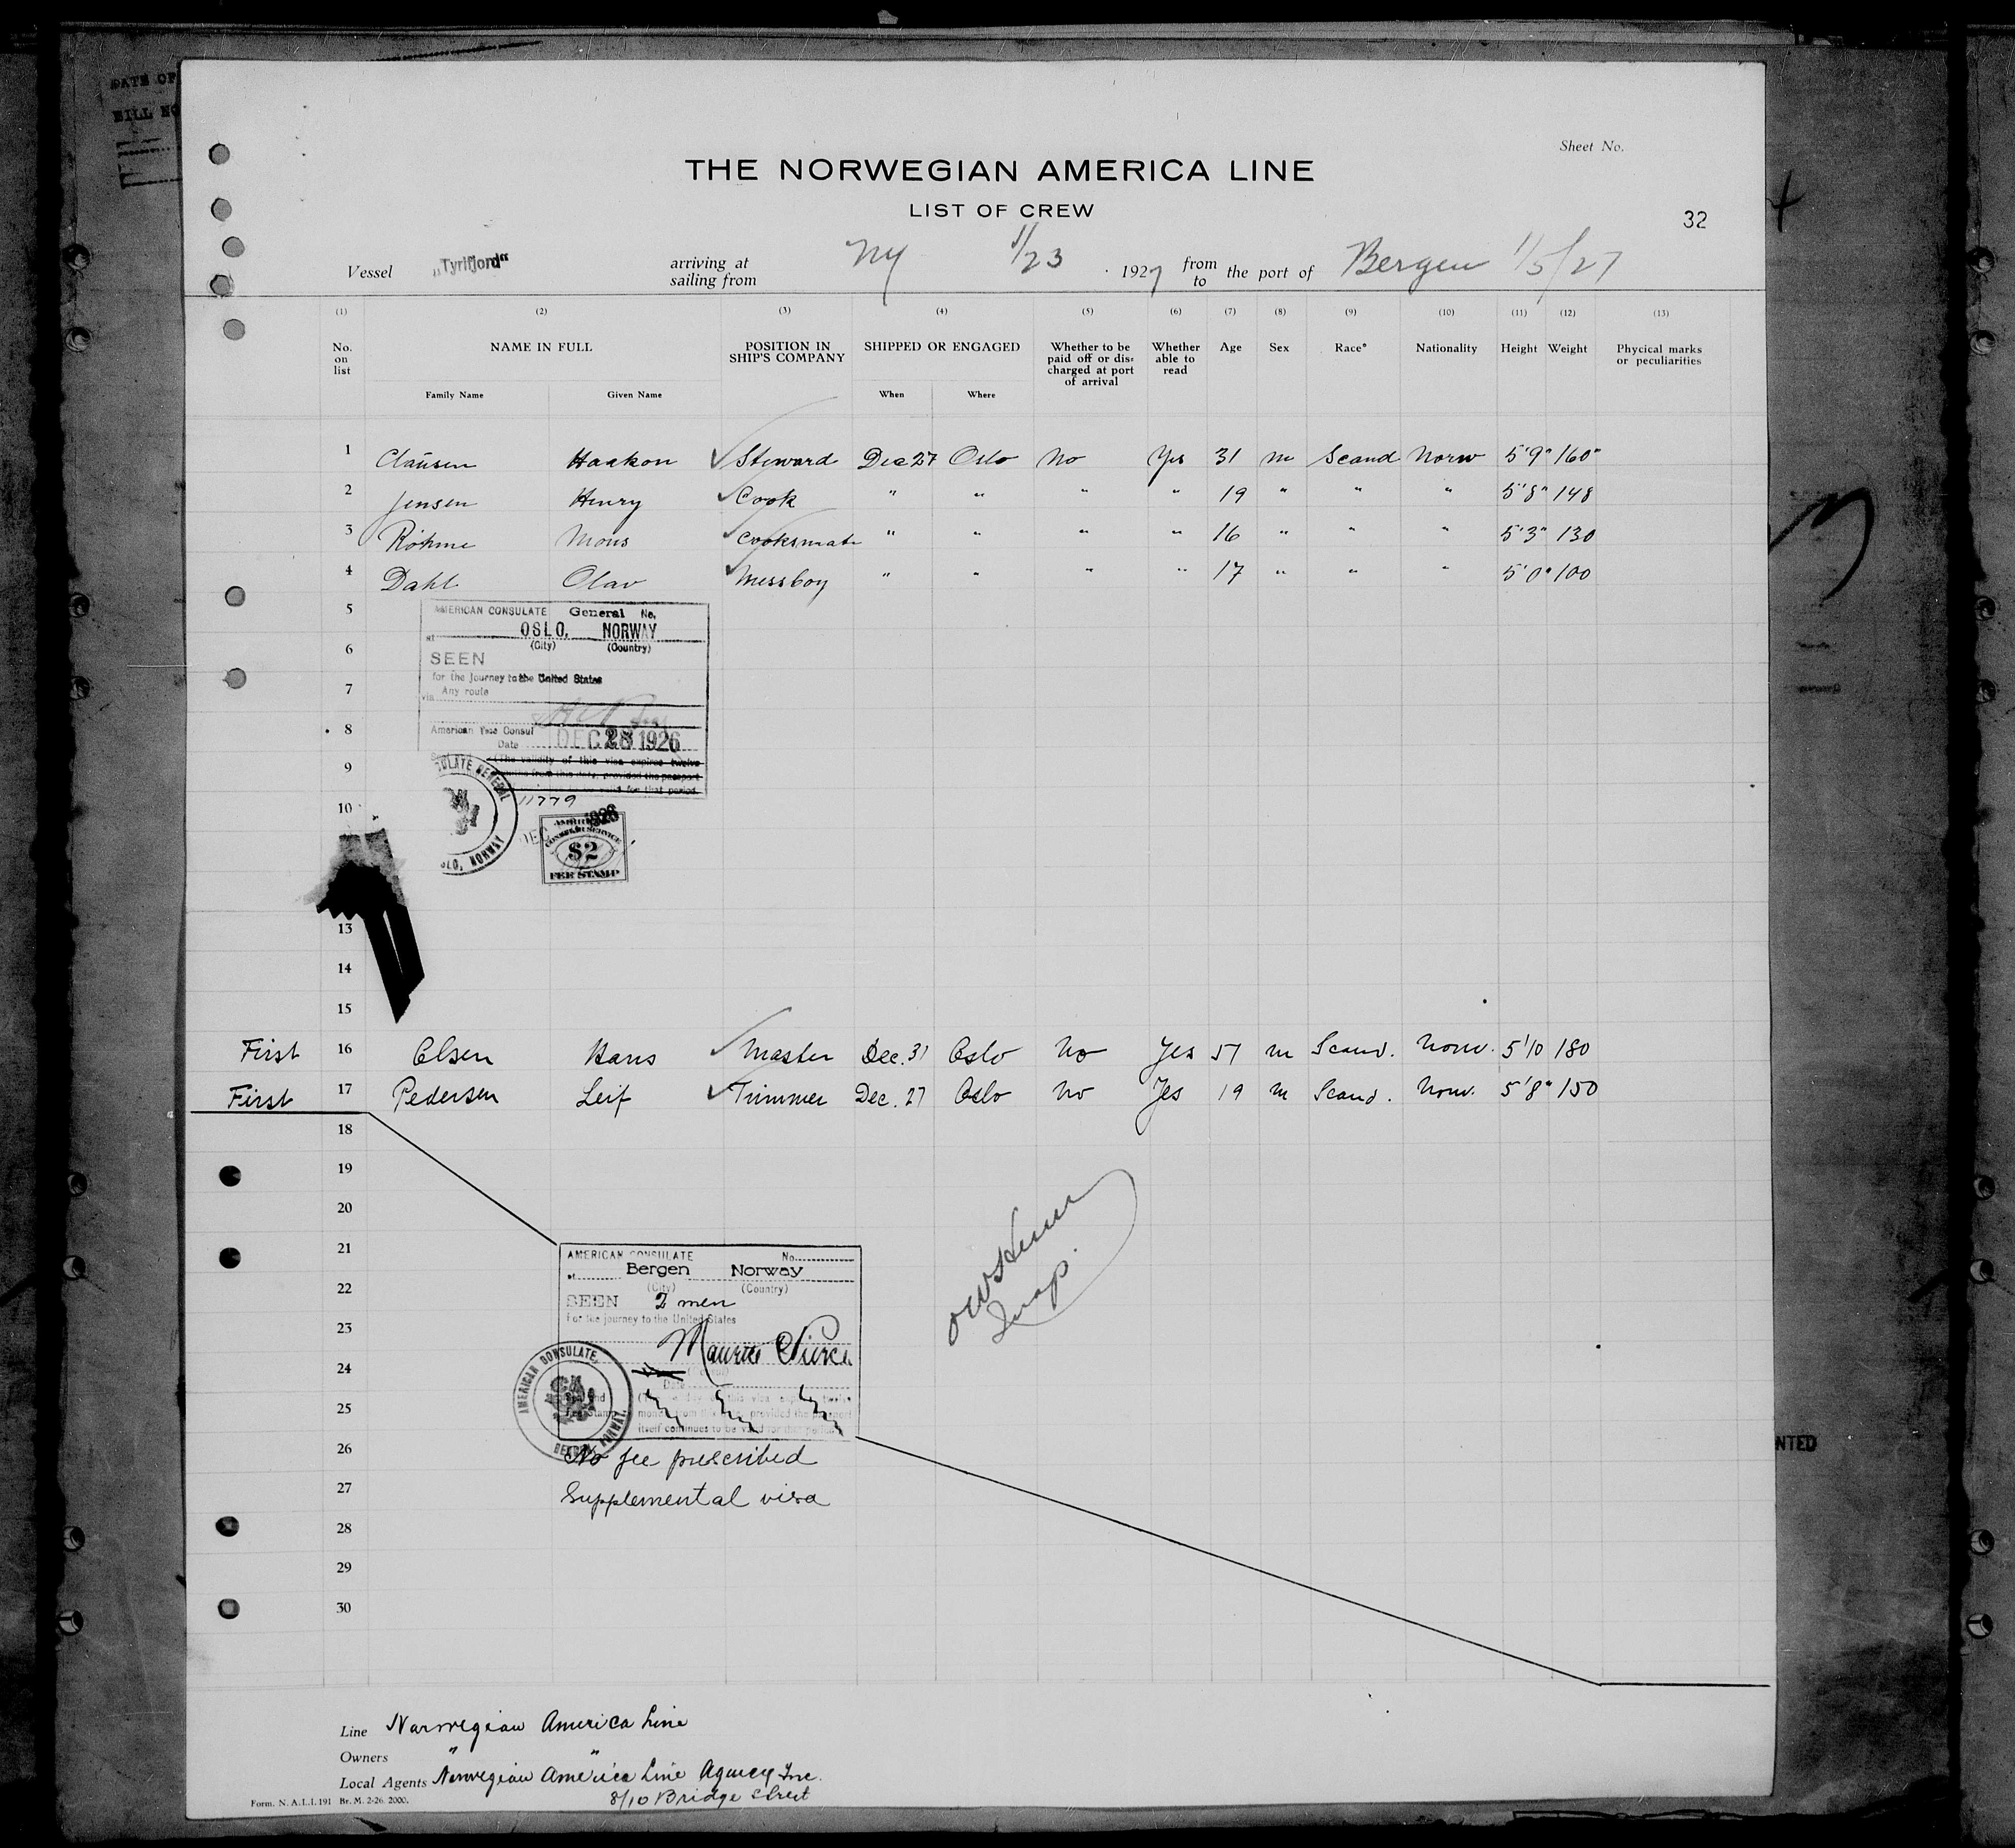 DATE OF
BILL NO
Sheet No.
THE NORWEGIAN AMERICA LINE
LIST OF CREW
32
Vessel „Tyrifjord“ arriving at sailing from NY 1/23 1927 from to the port of Bergen 1/5/27
(1) (2) (3) (4) (5) (6) (7) (8) (9) (10) (11) (12) (13)
No. on list NAME IN FULL POSITION IN SHIP'S COMPANY SHIPPED OR ENGAGED Whether to be paid off or dis-charged at port of arrival Whether able to read Age Sex Race* Nationality Height Weight Phycical marks or peculiarities
Family Name Given Name When Where
1 Clausen Haakon Steward Dec 27 Oslo No Yes 31 m Scand Norw 5'9" 160"
2 Jensen Henry Cook " " " " 19 " " " 5'8" 148
3 Röhme Mons Cooksmate " " " " 16 " " " 5'3" 130
4 Dahl Olav Messboy " " " " 17 " " " 5'0" 100
5
AMERICAN CONSULATE General No.
at OSLO, NORWAY
(City) (Country)
6
SEEN
for the Journey to the United States
7
via Any route
8
American Vice Consul
Date DEC 28 1926
9
(The validity of this visa expires twelve
months from this date, provided the passport
for that period.
10
11779
CONSULATE GENERAL
OSLO, NORWAY
DEC 1926
AMERICAN
CONSULAR SERVICE
$2
FEE STAMP
13
14
15
First 16 Olsen Hans Master Dec. 31 Oslo No Yes 51 m Scand. Norw. 5'10 180
First 17 Pedersen Leif Trimmer Dec. 27 Oslo No Yes 19 m Scand. Norw. 5'8" 150
18
19
20
21
AMERICAN CONSULATE No.
at Bergen Norway
22
(City) (Country)
SEEN 2 men
For the journey to the United States
23
Maurice Pierce
24
Date
25
(The validity of this visa expires twelve
months from this date, provided the passport
itself continues to be valid for that period.)
AMERICAN CONSULATE,
BERGEN, NORWAY
Insp.
26
No fee prescribed
27
Supplemental visa
28
29
30
NTED
Line Norwegian America Line
Owners " "
Local Agents Norwegian America Line Agency Inc.
8/10 Bridge Street
Form. N. A. L. I. 191 Br. M. 2-26. 2000.